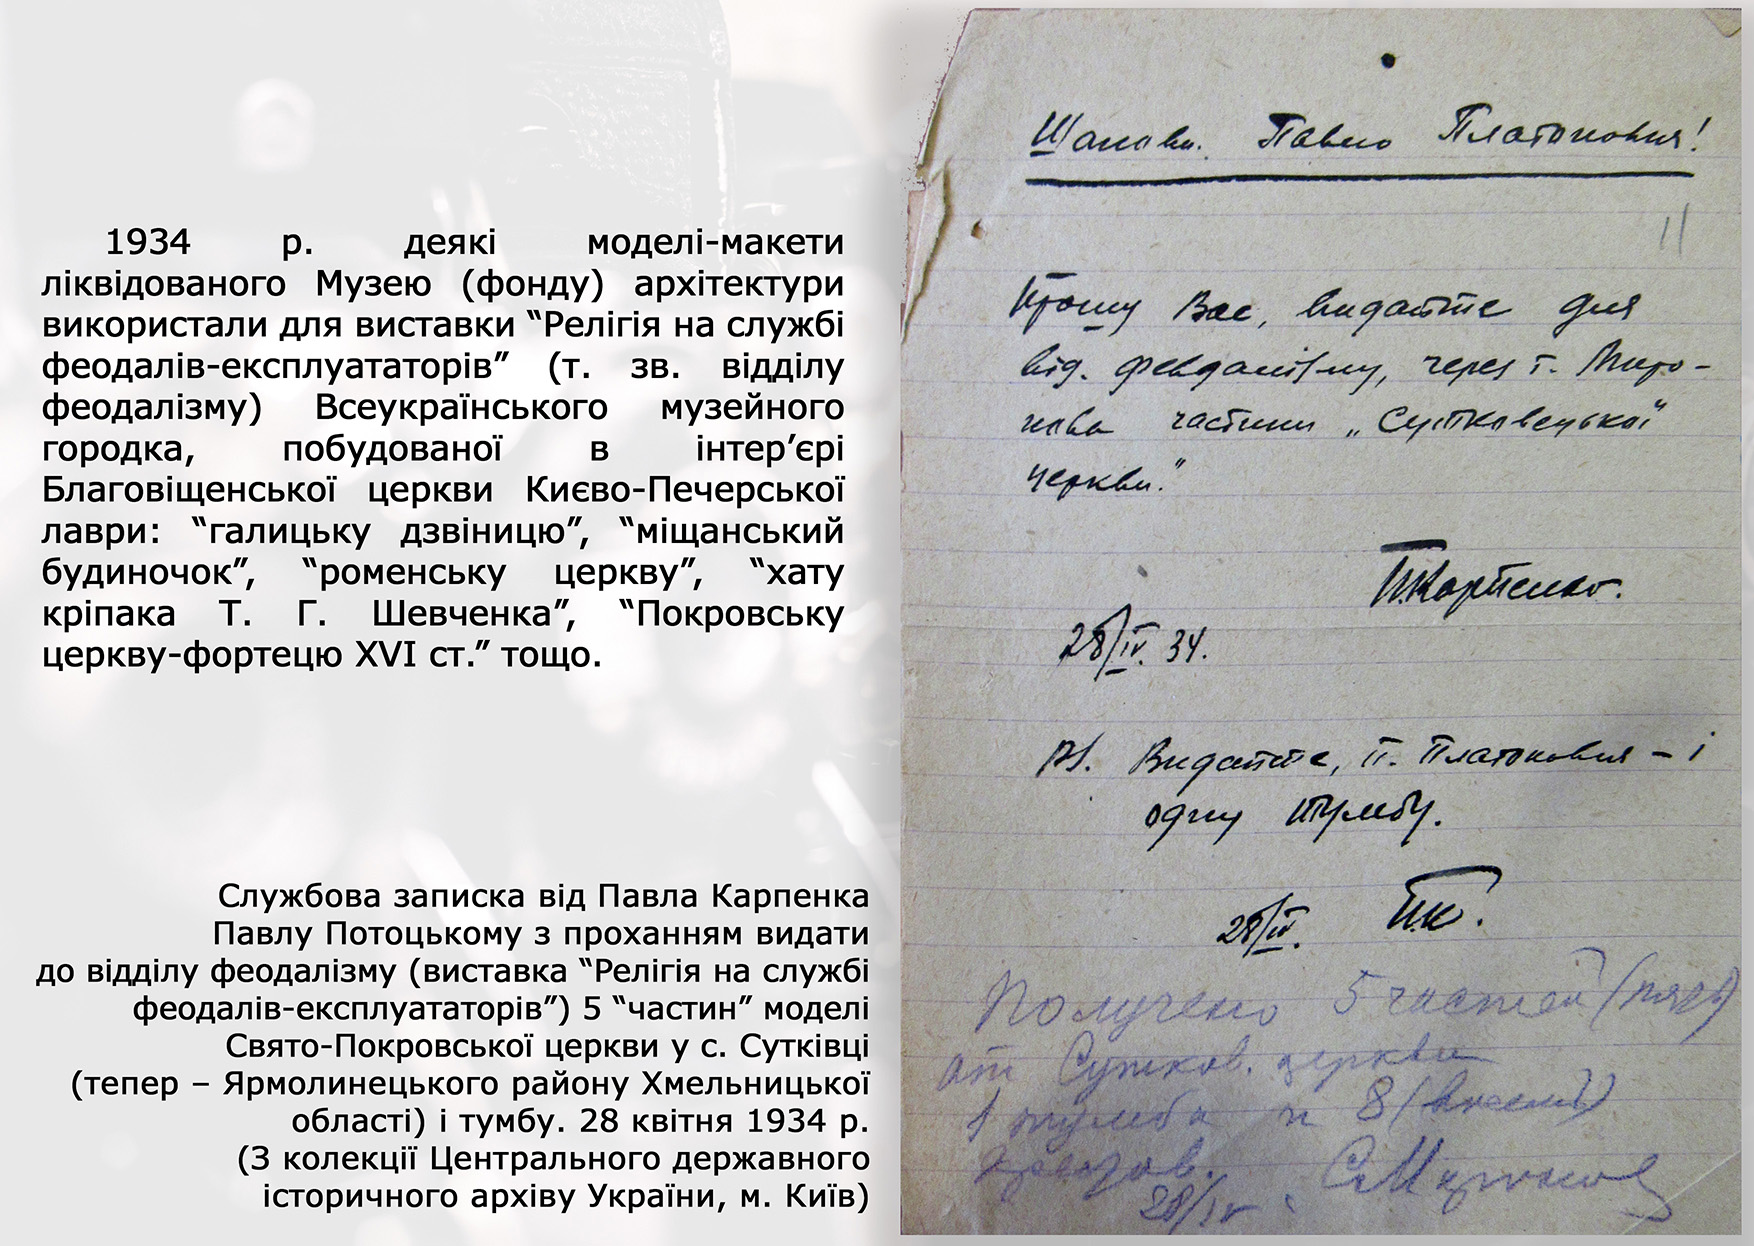 1934 р. деякі моделі-макети
ліквідованого Музею (фонду) архітектури
використали для виставки “Релігія на службі
феодалів-експлуататорів” (т. зв. відділу
феодалізму) Всеукраїнського музейного
городка, побудованої в інтер’єрі
Благовіщенської церкви Києво-Печерської
лаври: “галицьку дзвіницю”, “міщанський
будиночок”, “роменську церкву”, “хату
кріпака Т. Г. Шевченка”, “Покровську
церкву-фортецю XVI ст.” тощо.
Службова записка від Павла Карпенка
Павлу Потоцькому з проханням видати
до відділу феодалізму (виставка “Релігія на службі
феодалів-експлуататорів”) 5 “частин” моделі
Свято-Покровської церкви у с. Сутківці
(тепер – Ярмолинецького району Хмельницької
області) і тумбу. 28 квітня 1934 р.
(З колекції Центрального державного
історичного архіву України, м. Київ)
Шановн. Павло Платонович!
11
Прошу Вас, видайте для
від. феодалізму, через т. Миро-
нова частини „Сутковецької
церкви.“
П. Карпенко.
28/IV. 34.
PS. Видайте, П. Платонович – і
одну тумбу.
28/IV. П.К.
Получено 5 частей (пять)
от Сутков. церкви
1 тумба и 8 (восемь)
С Миронов
28/IV